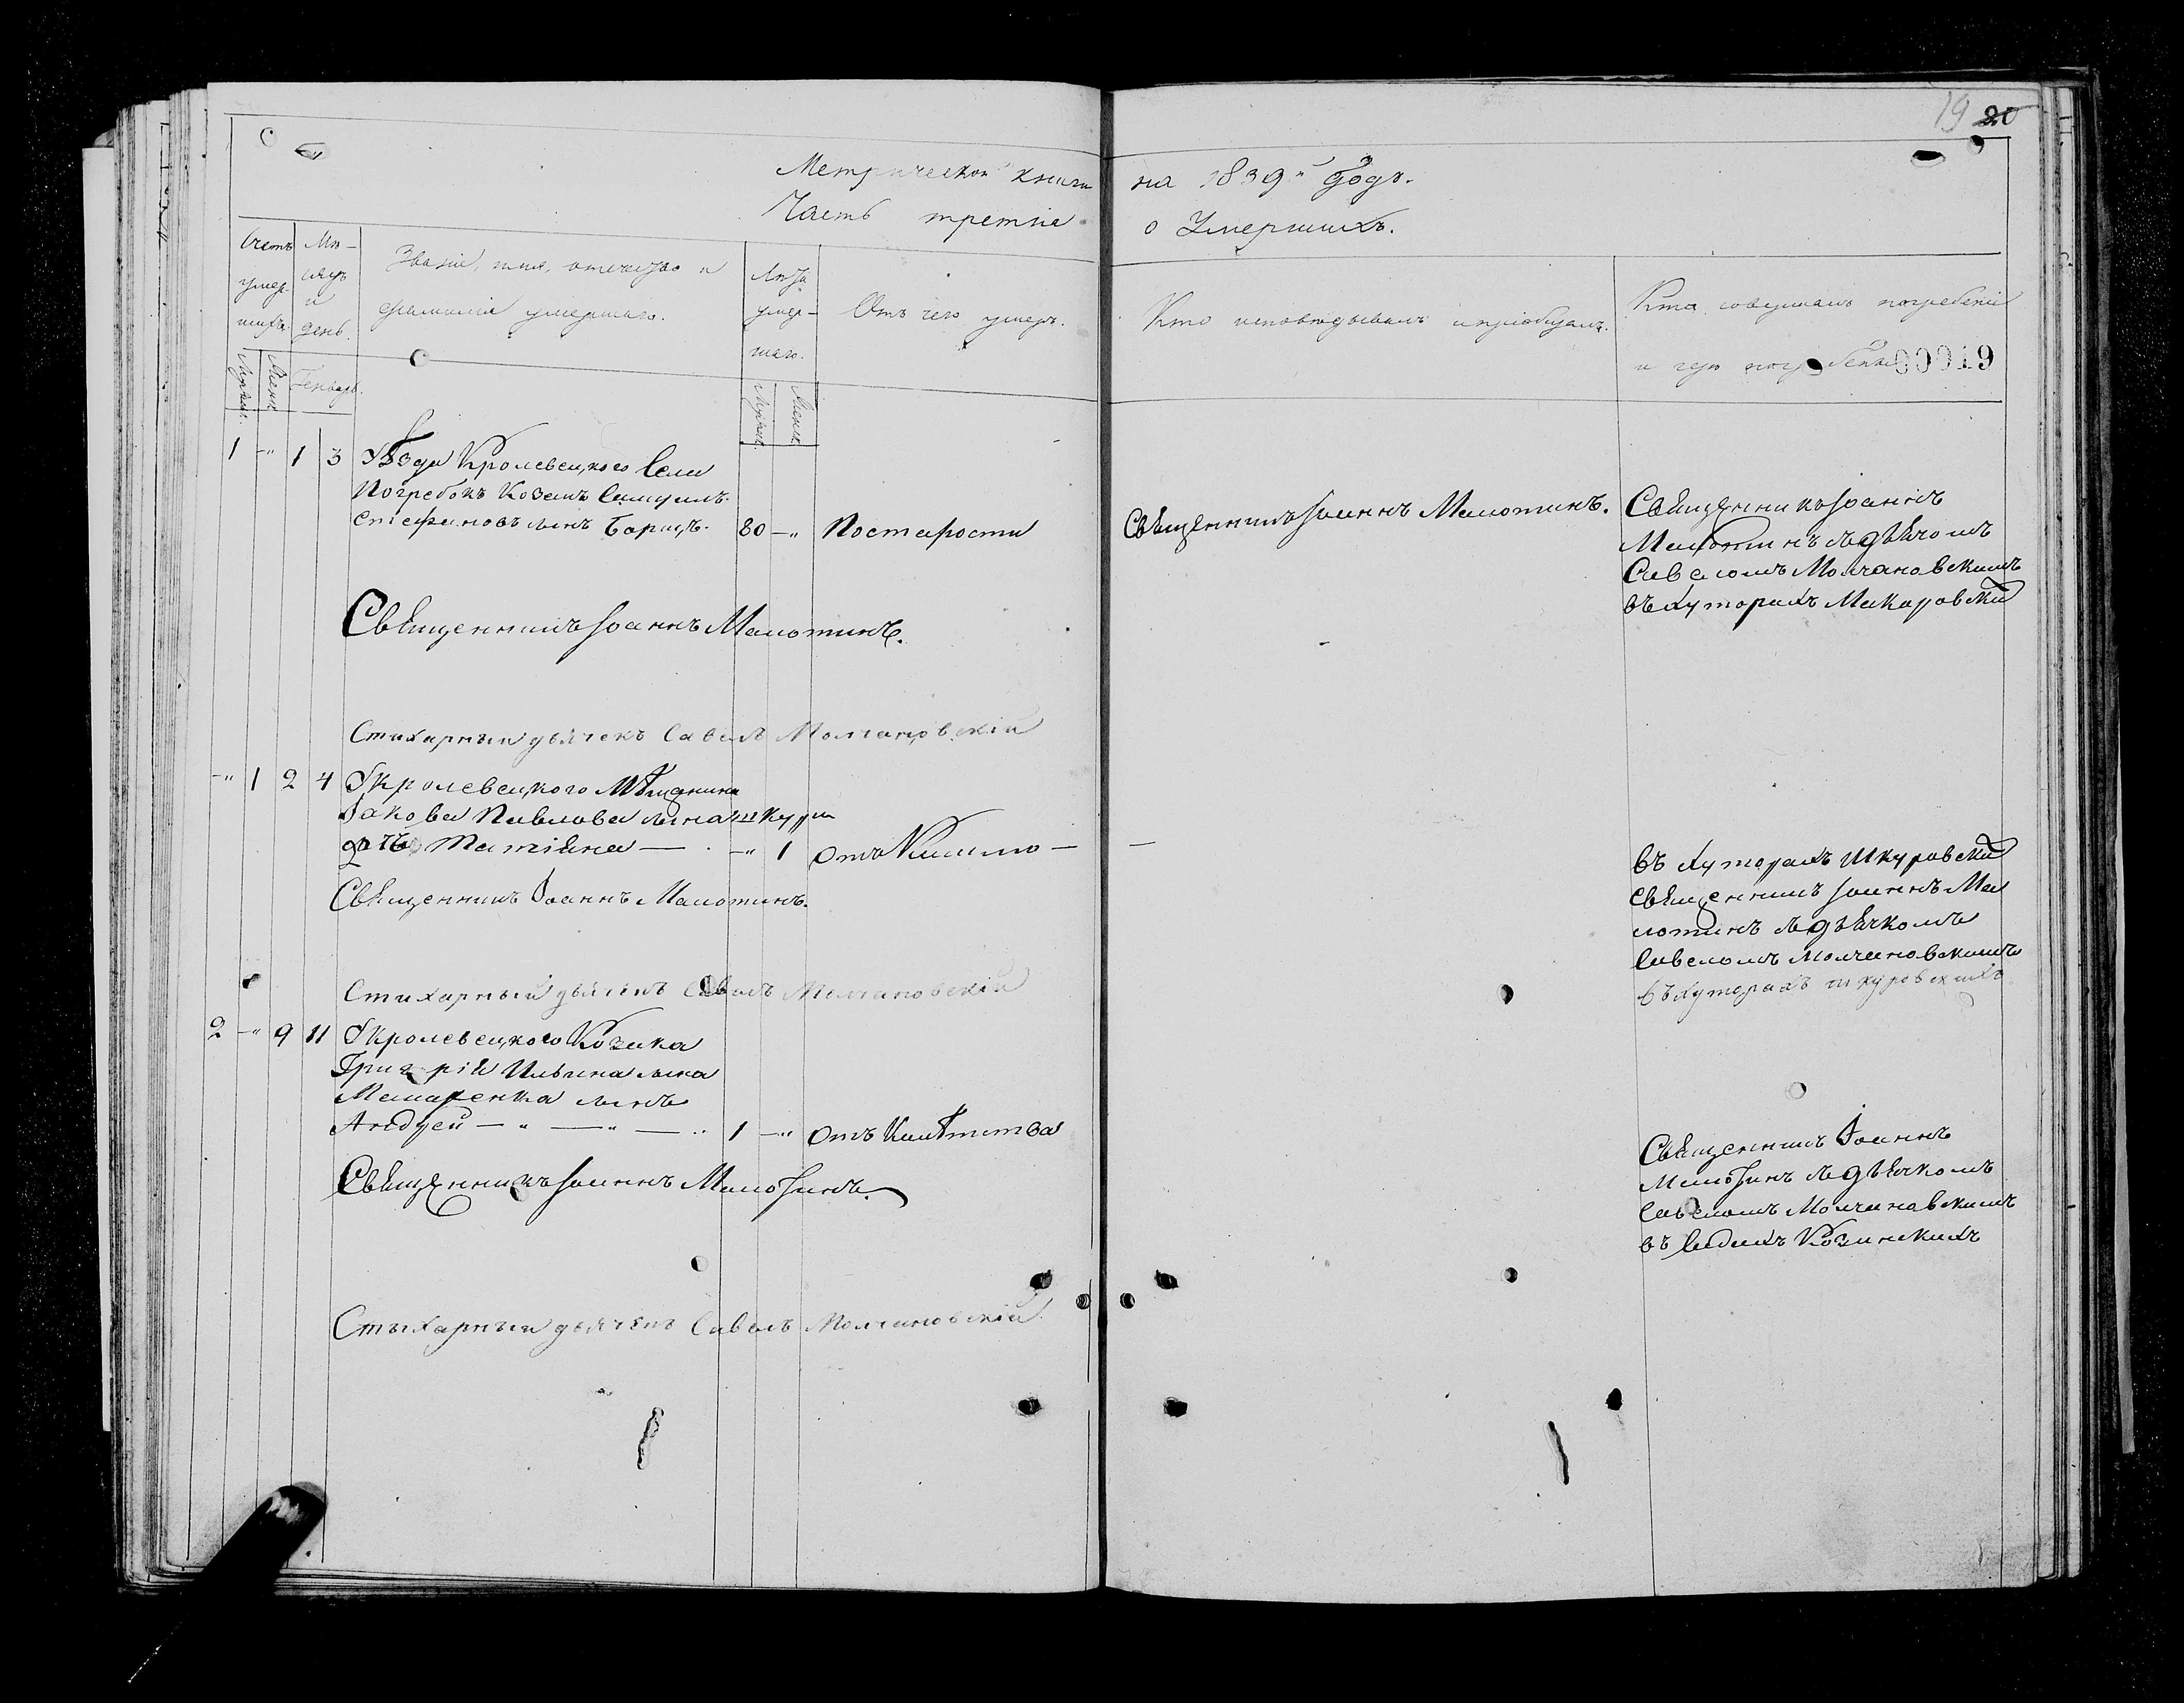 19 20
Метрической книги на 1839й Годъ.
Часть третия о Умершихъ.
Счетъ умер-шихъ
Мѣ-сяцъ и день.
Званіе, имя, отчество и фамилія умершаго.
Лѣта умер-шаго.
Отъ чего умеръ.
Кто исповѣдывалъ и пріобщалъ.
Кто совершалъ погребеніе
и гдѣ погребены
00019
Мужеск.
Женск.
Генварь.
Мужеск.
Женск.
1 -" 1 3 Уѣзда Кролевецкого Села
Погребокъ Козакъ Самуилъ
Стефановъ сынъ Борицъ. 80 -" Постарости
Священникъ Іоаннъ Малютинъ.
Священникъ Іоаннъ
Малютинъ съ дьячомъ
Савеломъ Молчановскимъ
въ хуторахъ Макаровски
Священникъ Іоаннъ Малютинъ.
Стихарный дьячекъ Савелъ Молчановскій
-" 1 2 4 Укролевецкого Мѣщанина
Іакова Павлова сына шкуры
дочь Матіяна — -" 1 отъ — —
въ хуторахъ Шкуровски
священникъ Іоаннъ Ма
лютинъ съ дьячкомъ
Савеломъ Молчановскимъ
въ хуторахъ шкуровскихъ
Священникъ Іоаннъ Малютинъ.
Стихарный дьячекъ Савелъ Молчановскій
2 -" 9 11 Укролевецкого Козака
Григорій Ильина сына
сынъ
Андрей — " — " — " 1 -"
Священникъ Іоаннъ
Малютинъ съ дьячкомъ
Савеломъ Молчановскимъ
въ Садахъ Козинскихъ
Священникъ Іоаннъ Малютинъ.
Стыхарный дьячекъ Савелъ Молчановскій